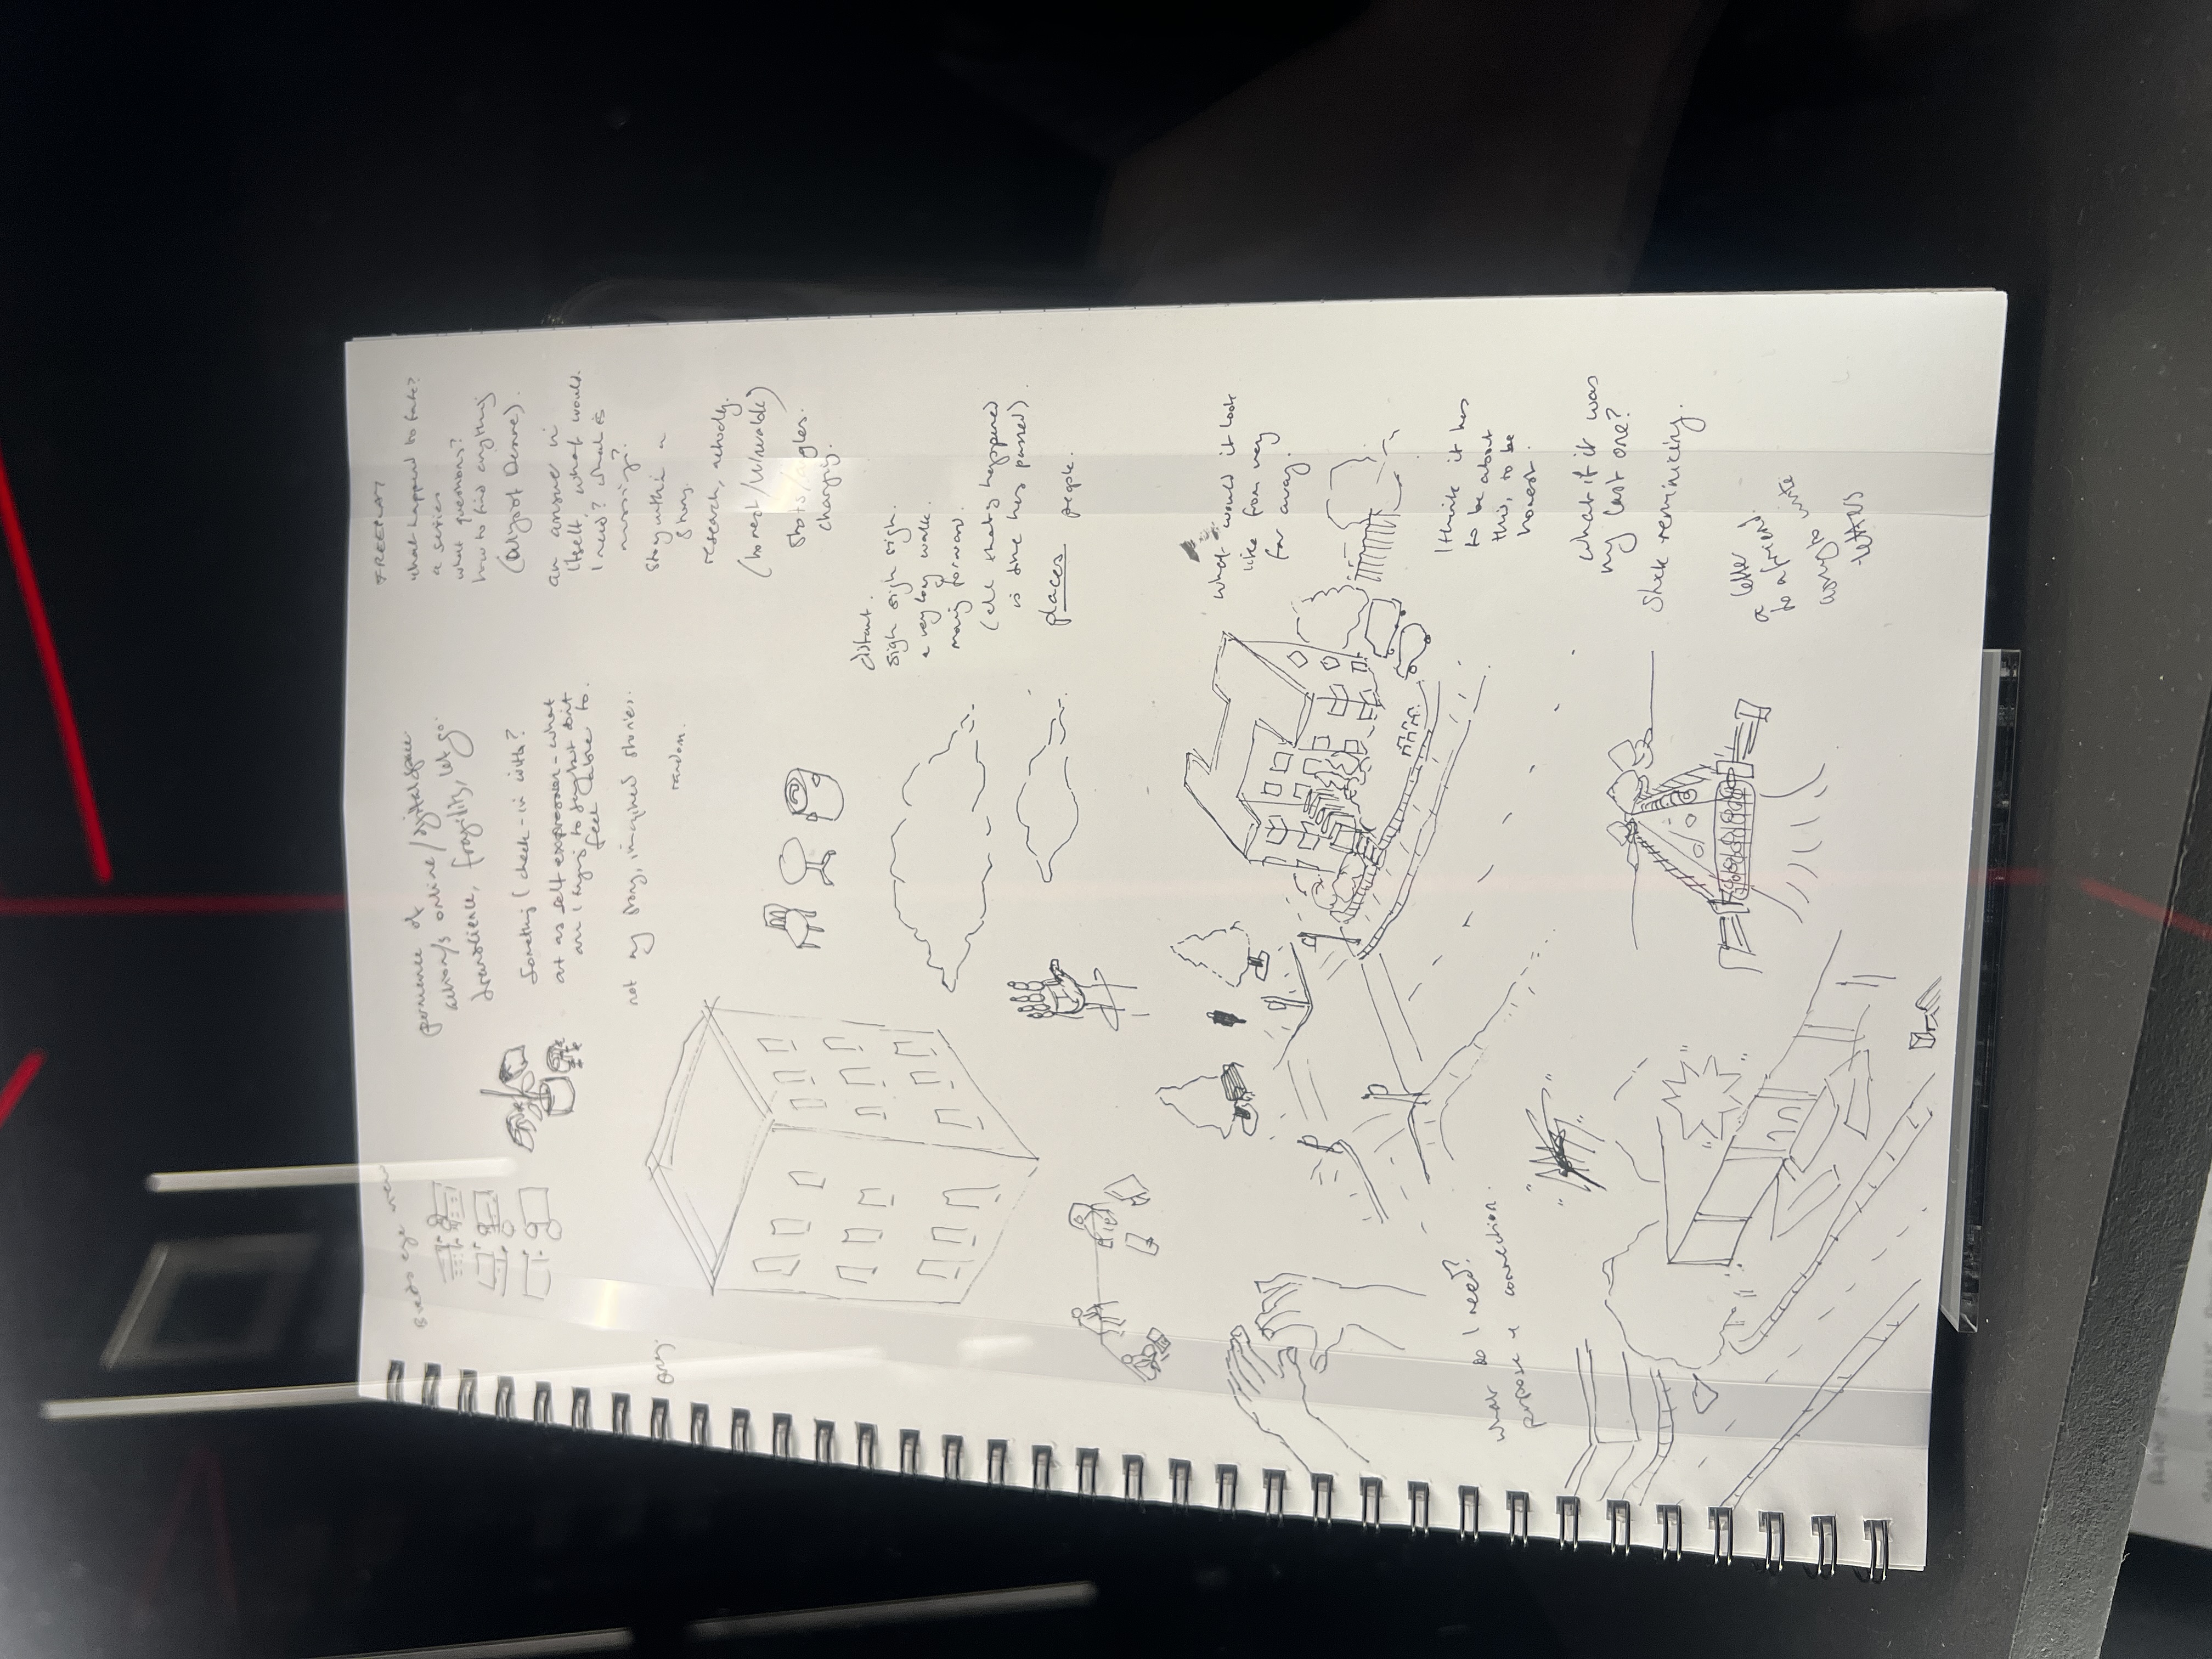 Birds eye view
permence of
action/s online/digital space
transcience, fragility, let go.
Something I check-in with?
art as self expression - what
am I trying to say but don't
feel able to.
not my story, imagined stories.
random.
FREEPLAY
what happend to fate?
a series
what questions?
how to find anything
an answer in
itself, what would
I need? what is
missing?
story within a
story.
research, actually.
(honest/
shots/angles.
changing.
distant.
sigh sigh sigh.
a very long walk.
moving forward.
(all that's happened
is time has passed).
places people.
what would it look
like from very
far away.
what do I need?
purpose & connection.
I think it has
to be about
this, to be
honest.
what if it was
my last one?
Stuck reminicing.
a letter
to a friend.
to write
letters